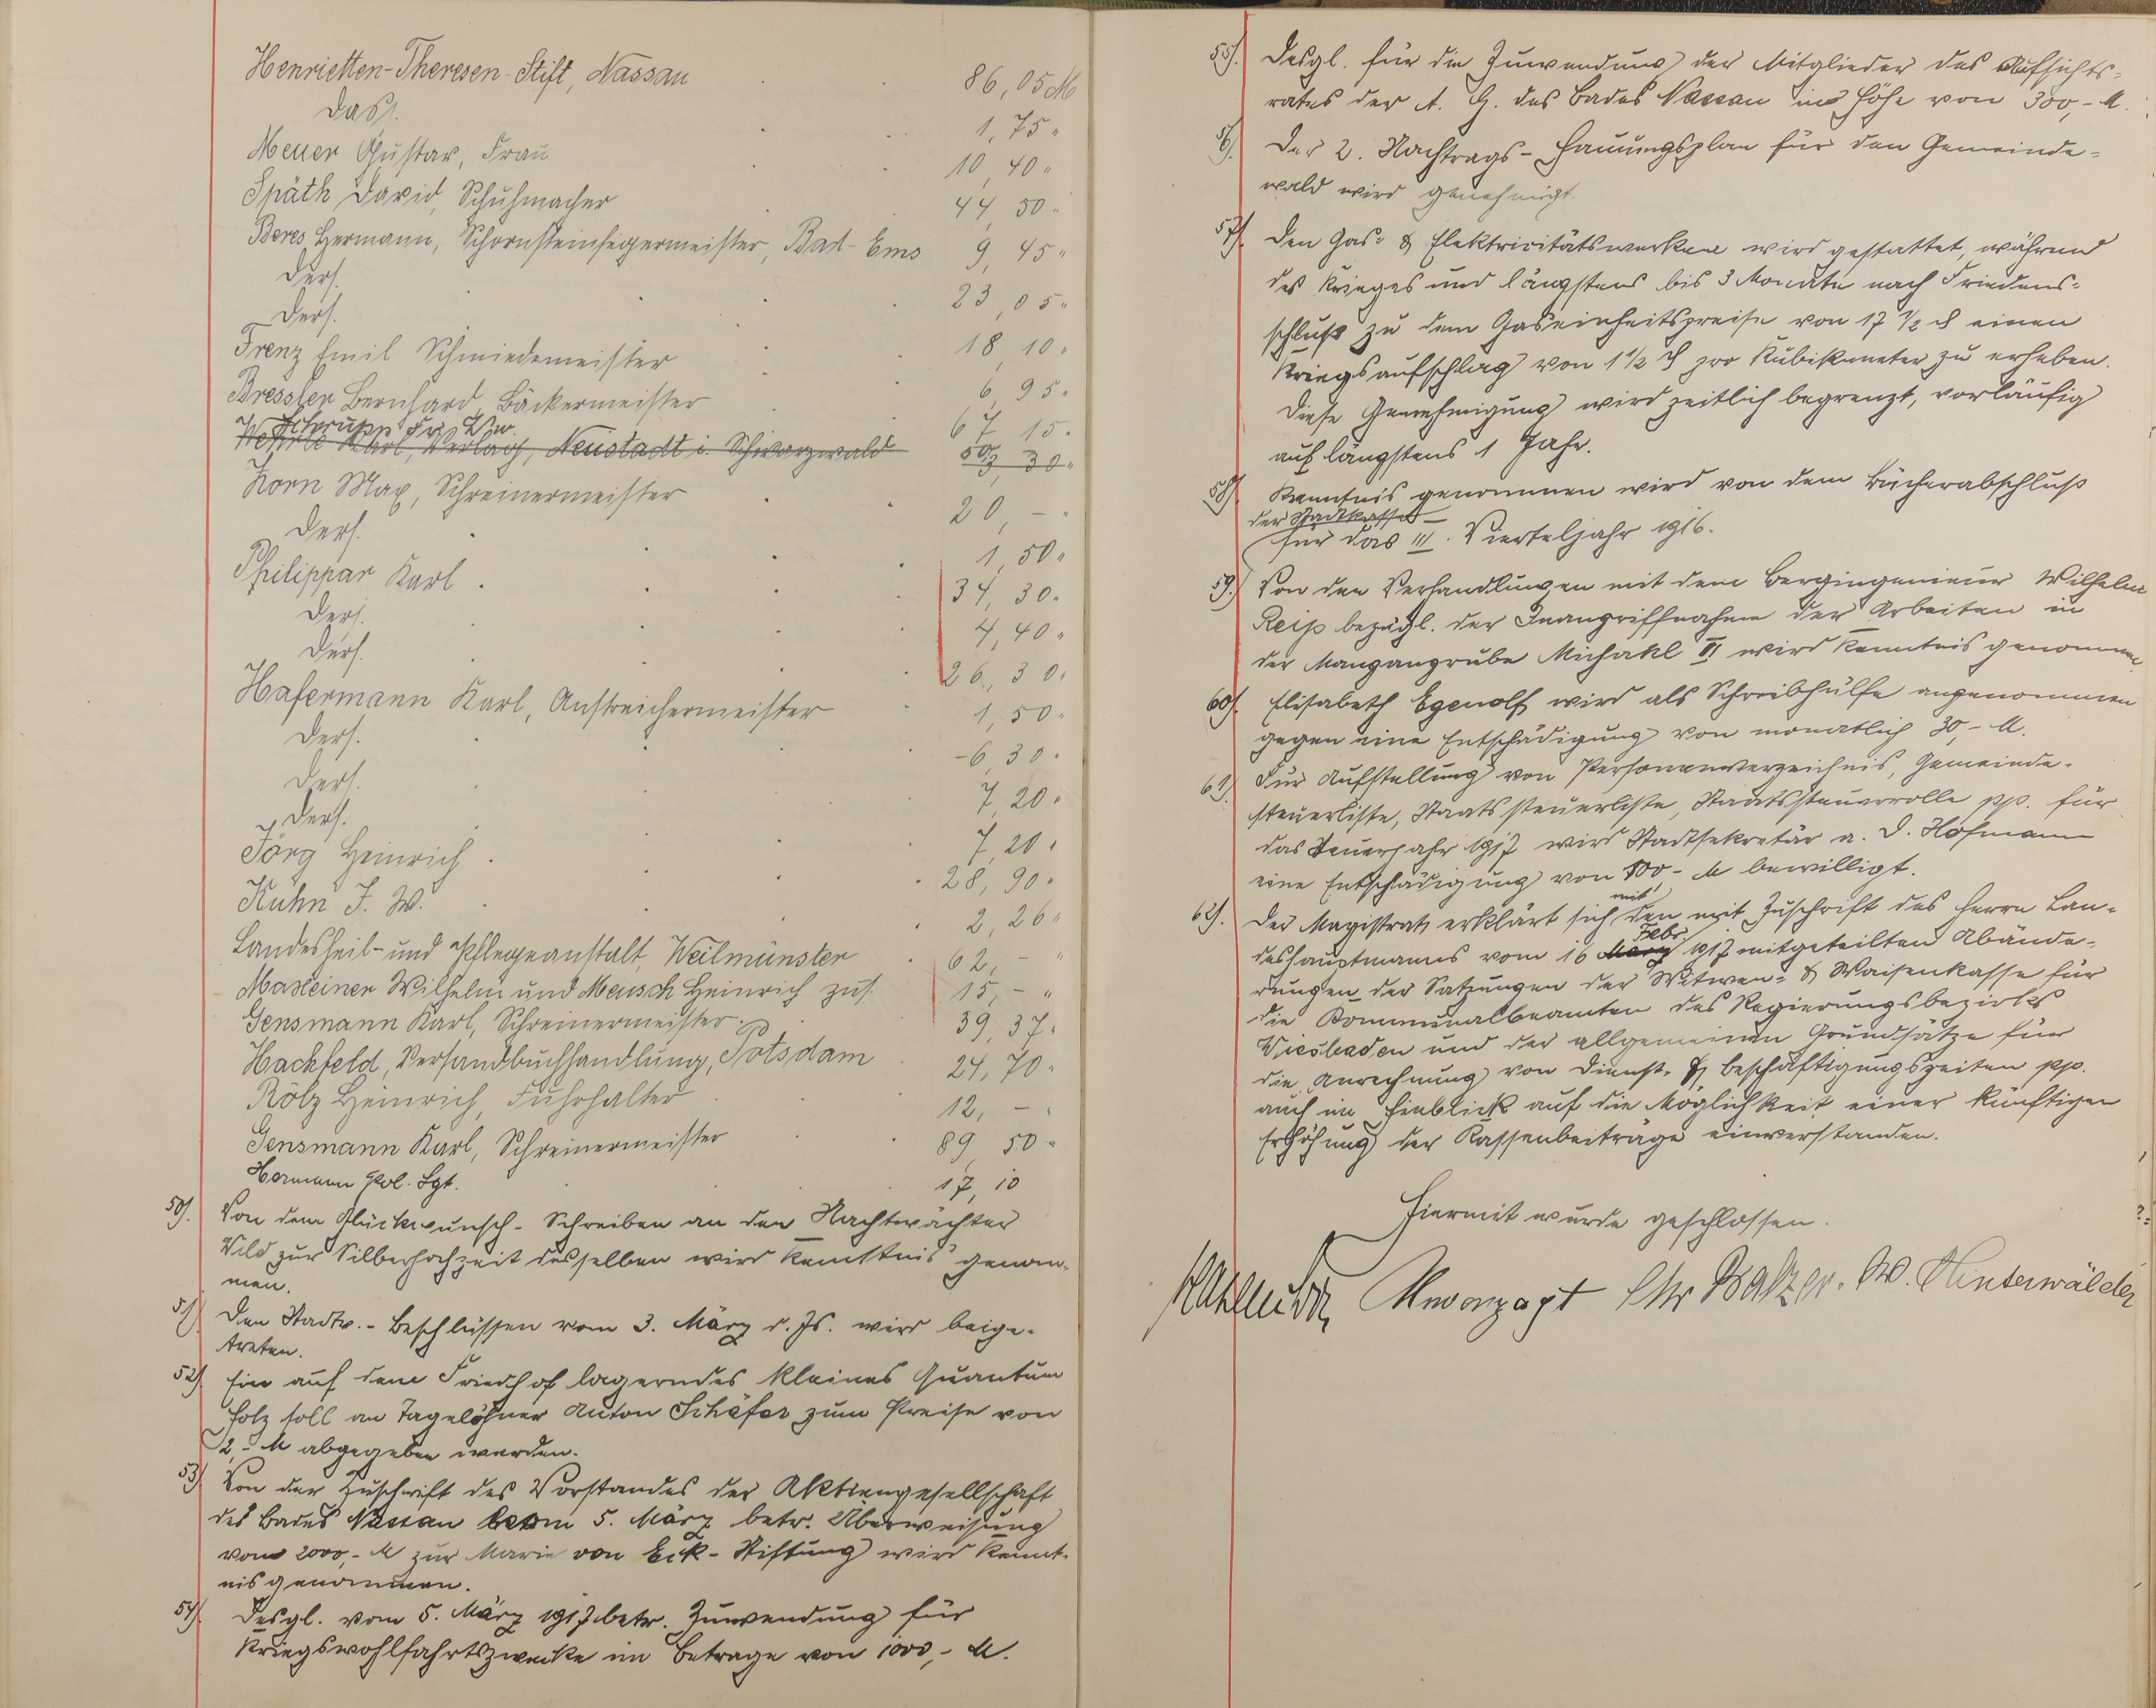 Henrietten-Theresen-Stift, Nassau 86,05 M
Dass. 1,75 "
Meyer Gustav, Frau 10,40 "
Späth David, Schuhmacher 44,50 "
Beres Hermann, Schornsteinfegermeister, Bad-Ems 9,45 "
Ders. 23,05 "
Ders. 18,10 "
Trenz Emil Schmiedemeister 6,95 "
Bressler Bernhard, Bäckermeister 67,15 "
Wehrle Karl, Verlag, Neustadt i. Schwarzwald 30 "
Korn Max, Schreinermeister 20,- "
Ders. 1,50 "
Philippar Karl . 34,30 "
Ders. 4,40 "
Ders. 26,30 "
Hafermann Karl, Anstreichermeister 1,50 "
Ders. -6,30 "
Ders. 7,20 "
Ders. 7,20 "
Jörg Heinrich . 28,90 "
Kuhn J. W. 2,26 "
Landesheil- und Pflegeanstalt, Weilmünster 62,- "
Masteiner Wilhelm und Meusch Heinrich zus. 15,- "
Gensmann Karl, Schreinermeister 39,37 "
Hachfeld, Versandbuchhandlung, Potsdam 24,70 "
Rölz Heinrich, Fuhrhalter 12,- "
Gensmann Karl, Schreinermeister 89,50 "
Hermann Pol. Sgt. 17,10
50). Von dem Glückwunsch-Schreiben an den Nachtwächter
Wild zur Silberhochzeit desselben wird Kenntnis genom-
men.
51) Den Stadtv.-Beschlüssen vom 3. März d. Js. wird beige-
treten.
52) Ein auf dem Friedhof lagerndes kleines Quantum
Holz soll an Tagelöhner Anton Schäfer zum Preise von
2,- M abgegeben werden.
53) Von der Zuschrift des Vorstandes der Aktiengesellschaft
des Bades Nassau vom 5. März betr. Überweisung
von 2000,- M zur Marie von Eck-Stiftung wird Kennt-
nis genommen.
54). Desgl. vom 5. März 1917 betr. Zuwendung für
Kriegswohlfahrtszwecke im Betrage von 1000,- M.
55). Desgl. für die Zuwendung der Mitglieder des Aufsichts-
rates der A. G. des Bades Nassau in Höhe von 300,- M.
56). Der 2. Nachtrags-Hauungsplan für den Gemeinde-
wald wird genehmigt.
57). Den Gas- & Elektricitätswerken wird gestattet, während
des Krieges und längstens bis 3 Monate nach Friedens-
schluß zu dem Gaseinheitspreise von 17 1/2 ₰ einen
Kriegsaufschlag von 1 1/2 ₰ pro Kubikmeter zu erheben.
Diese Genehmigung wird zeitlich begrenzt, vorläufig
auf längstens 1 Jahr.
58). Kenntnis genommen wird von dem Bücherabschluß
der Stadtkasse
für das III. Vierteljahr 1916.
59.) Von den Verhandlungen mit dem Bergingenieur Wilhelm
Reiß bezügl. der Inangriffnahme der Arbeiten in
der Mangangrube Michael II wird Kenntnis genommen
60). Elisabeth Egenolf wird als Schreibhülfe angenommen
gegen eine Entschädigung von monatlich 30,- M.
61) Für Aufstellung von Personenverzeichnis, Gemeinde-
steuerliste, Staatssteuerliste, Staatssteuerrolle pp. für
das Steuerjahr 1917 wird Stadtsekretär a. D. Hofmann
eine Entschädigung von 100,- M bewilligt.
62). Der Magistrat erklärt sich mit den mit Zuschrift des Herrn Lan-
deshauptmanns vom 16 März Febr. 1917 mitgeteilten Abände-
rungen der Satzungen der Witwen- & Waisenkasse für
die Kommunalbeamten des Regierungsbezirks
Wiesbaden und der allgemeinen Grundsätze für
die Anrechnung von Dienst- & Beschäftigungszeiten pp.
auch im Hinblick auf die Möglichkeit einer künftigen
Erhöhung der Kassenbeiträge einverstanden.
Hiermit wurde geschlossen.
Unverzagt Chr Balzer. W. Hinterwälder